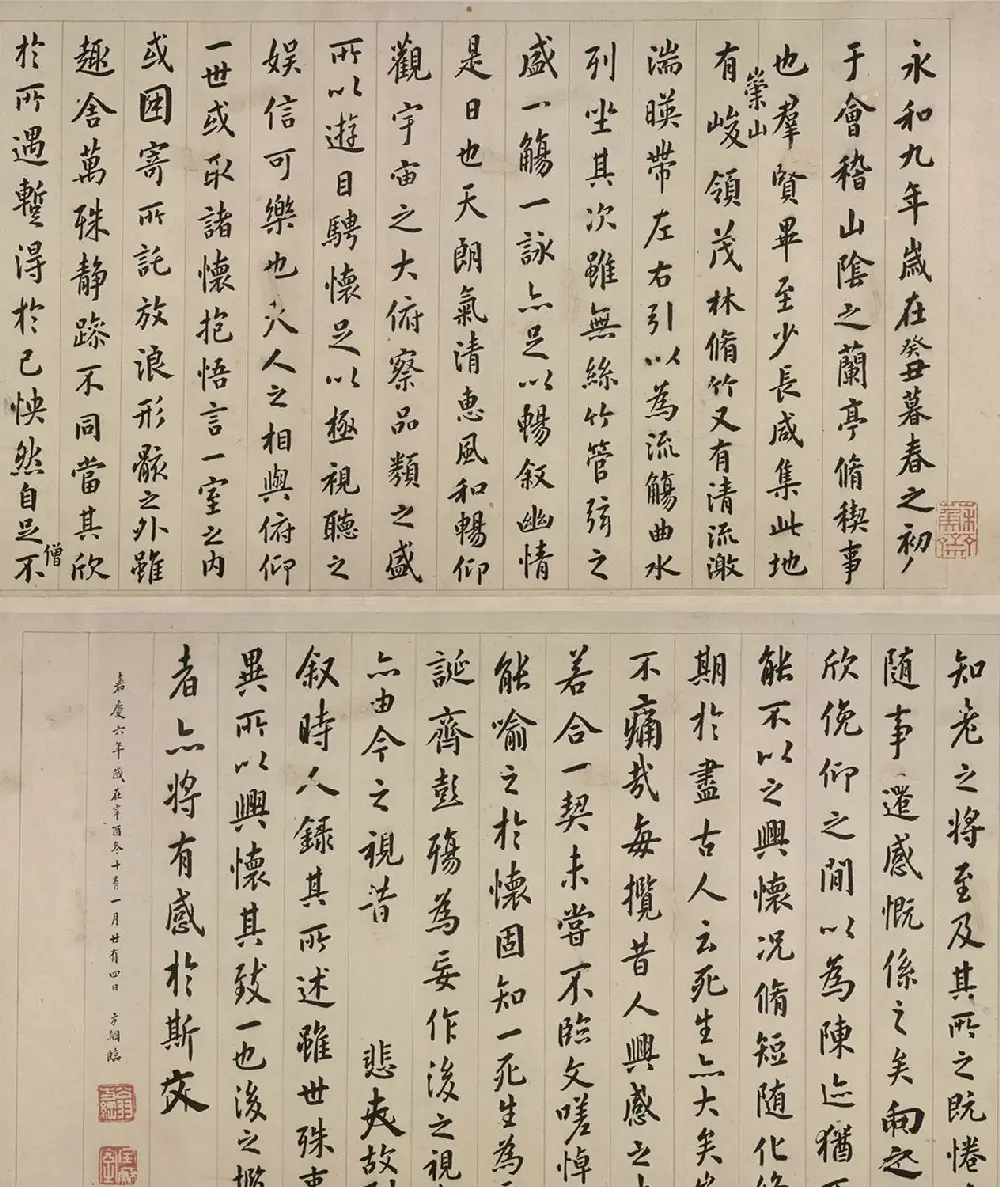 永和九年歲在癸丑暮春之初
于會稽山陰之蘭亭脩稧事
也羣賢畢至少長咸集此地
有崇山峻領茂林脩竹又有清流激
湍暎帶左右引以為流觴曲水
列坐其次雖無絲竹管弦之
盛一觴一詠亦足以暢叙幽情
是日也天朗氣清惠風和暢仰
觀宇宙之大俯察品類之盛
所以遊目騁懷足以極視聽之
娛信可樂也夫人之相與俯仰
一世或取諸懷抱悟言一室之內
或因寄所託放浪形骸之外雖
趣舍萬殊静躁不同當其欣
僧
於所遇蹔得於己怏然自足不
知老之將至及其所之既惓
隨事遷感慨係之矣向之
欣俛仰之間以為陳迹猶
能不以之興懷況脩短隨化
期於盡古人云死生亦大矣
不痛哉每攬昔人興感之
若合一契未嘗不臨文嗟悼
能喻之於懷固知一死生為
誕齊彭殤為妄作後之視
亦由今之視昔 悲夫故
叙時人錄其所述雖世殊事
異所以興懷其致一也後之攬
者亦將有感於斯文
嘉慶六年歲在辛酉冬十有一月廿有四日 方綱臨